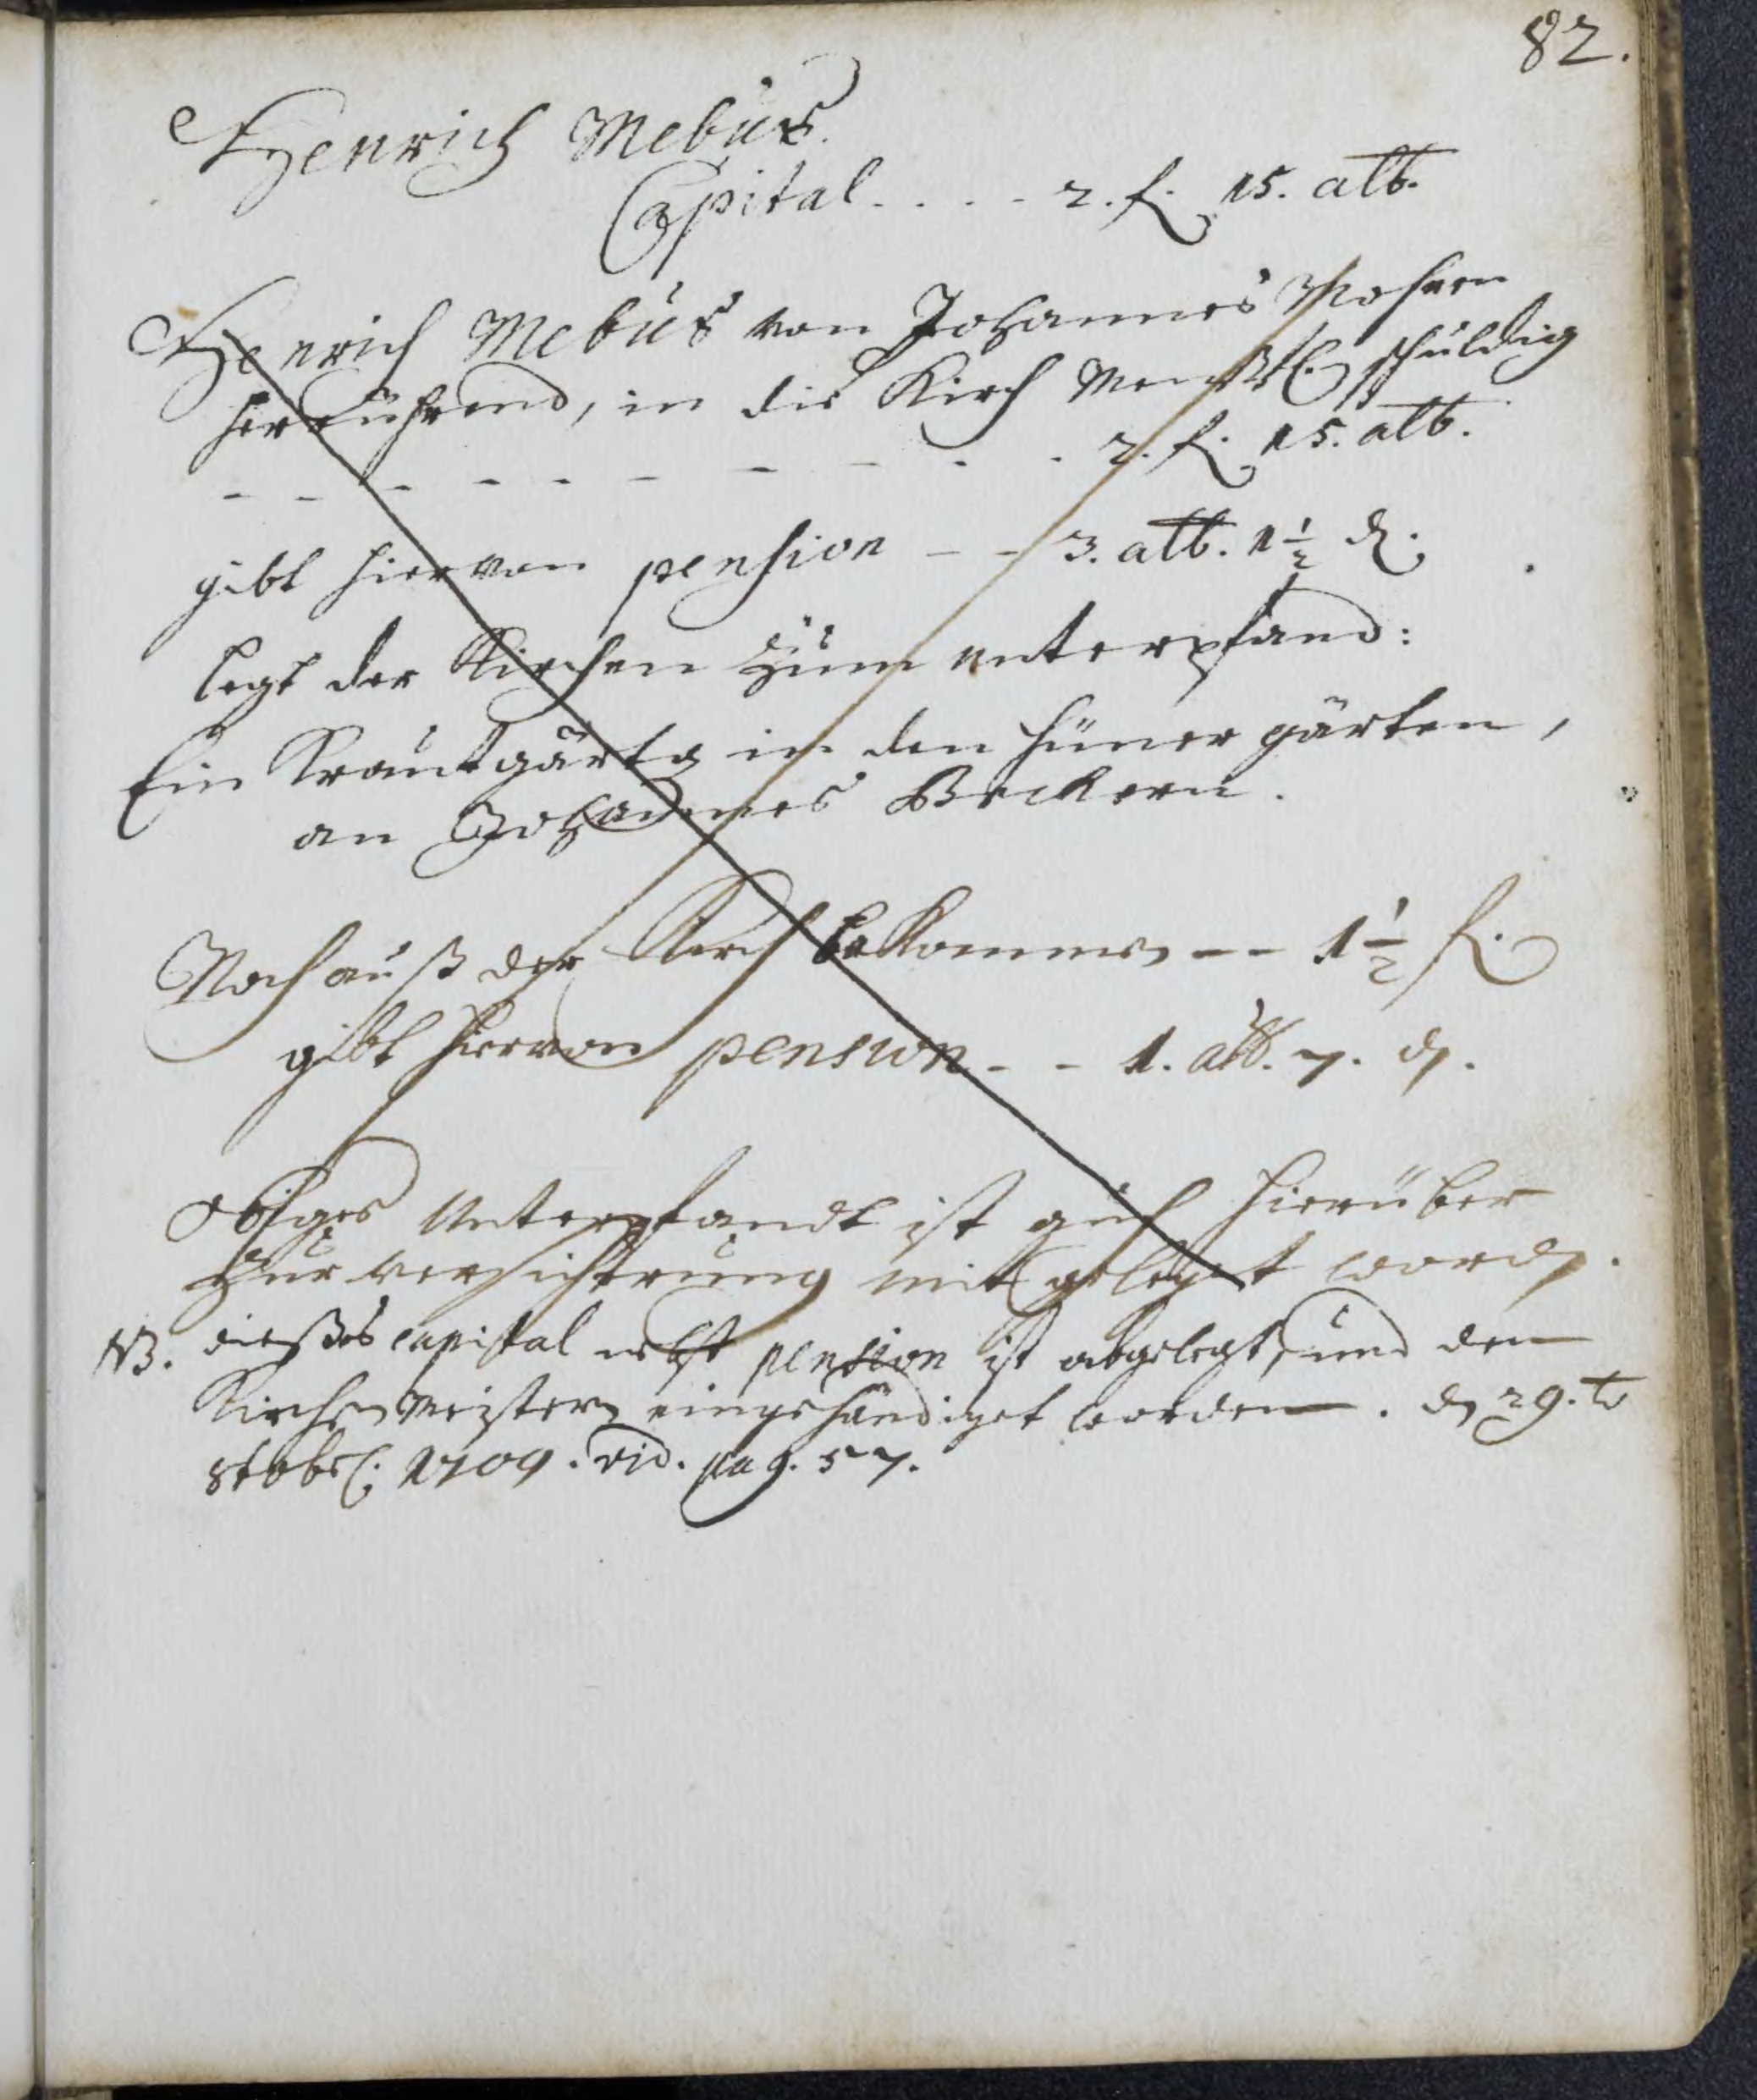 82.
Henrich Mebus.
Capital . . . . 2. f. 15. alb.
Henrich Mebus von Johannes Mohren
herrührend, in die Kirch schuldig
- - - - - - - - . . 2. f. 15. alb.
gibt hiervon pension - - 3. alb. 1½ d.
legt der Kirchen zum unterpfand:
Ein Krautgärtg in den hüner gärten,
an Johannes Beckern.
Noch auß der Kirch bekommen -- 1½ f.
gibt hiervon pension - - 1. alb. 7. d.
Obiges Unterpfandt ist auch hierüber
zur versicherung mit gelegt word.
NB. dießes capital nebst pension ist abgelegt, und dem
Kirchen Meistern eingehändiget worden. d 29. t
8tobr. 1709. vid. pag. 57.